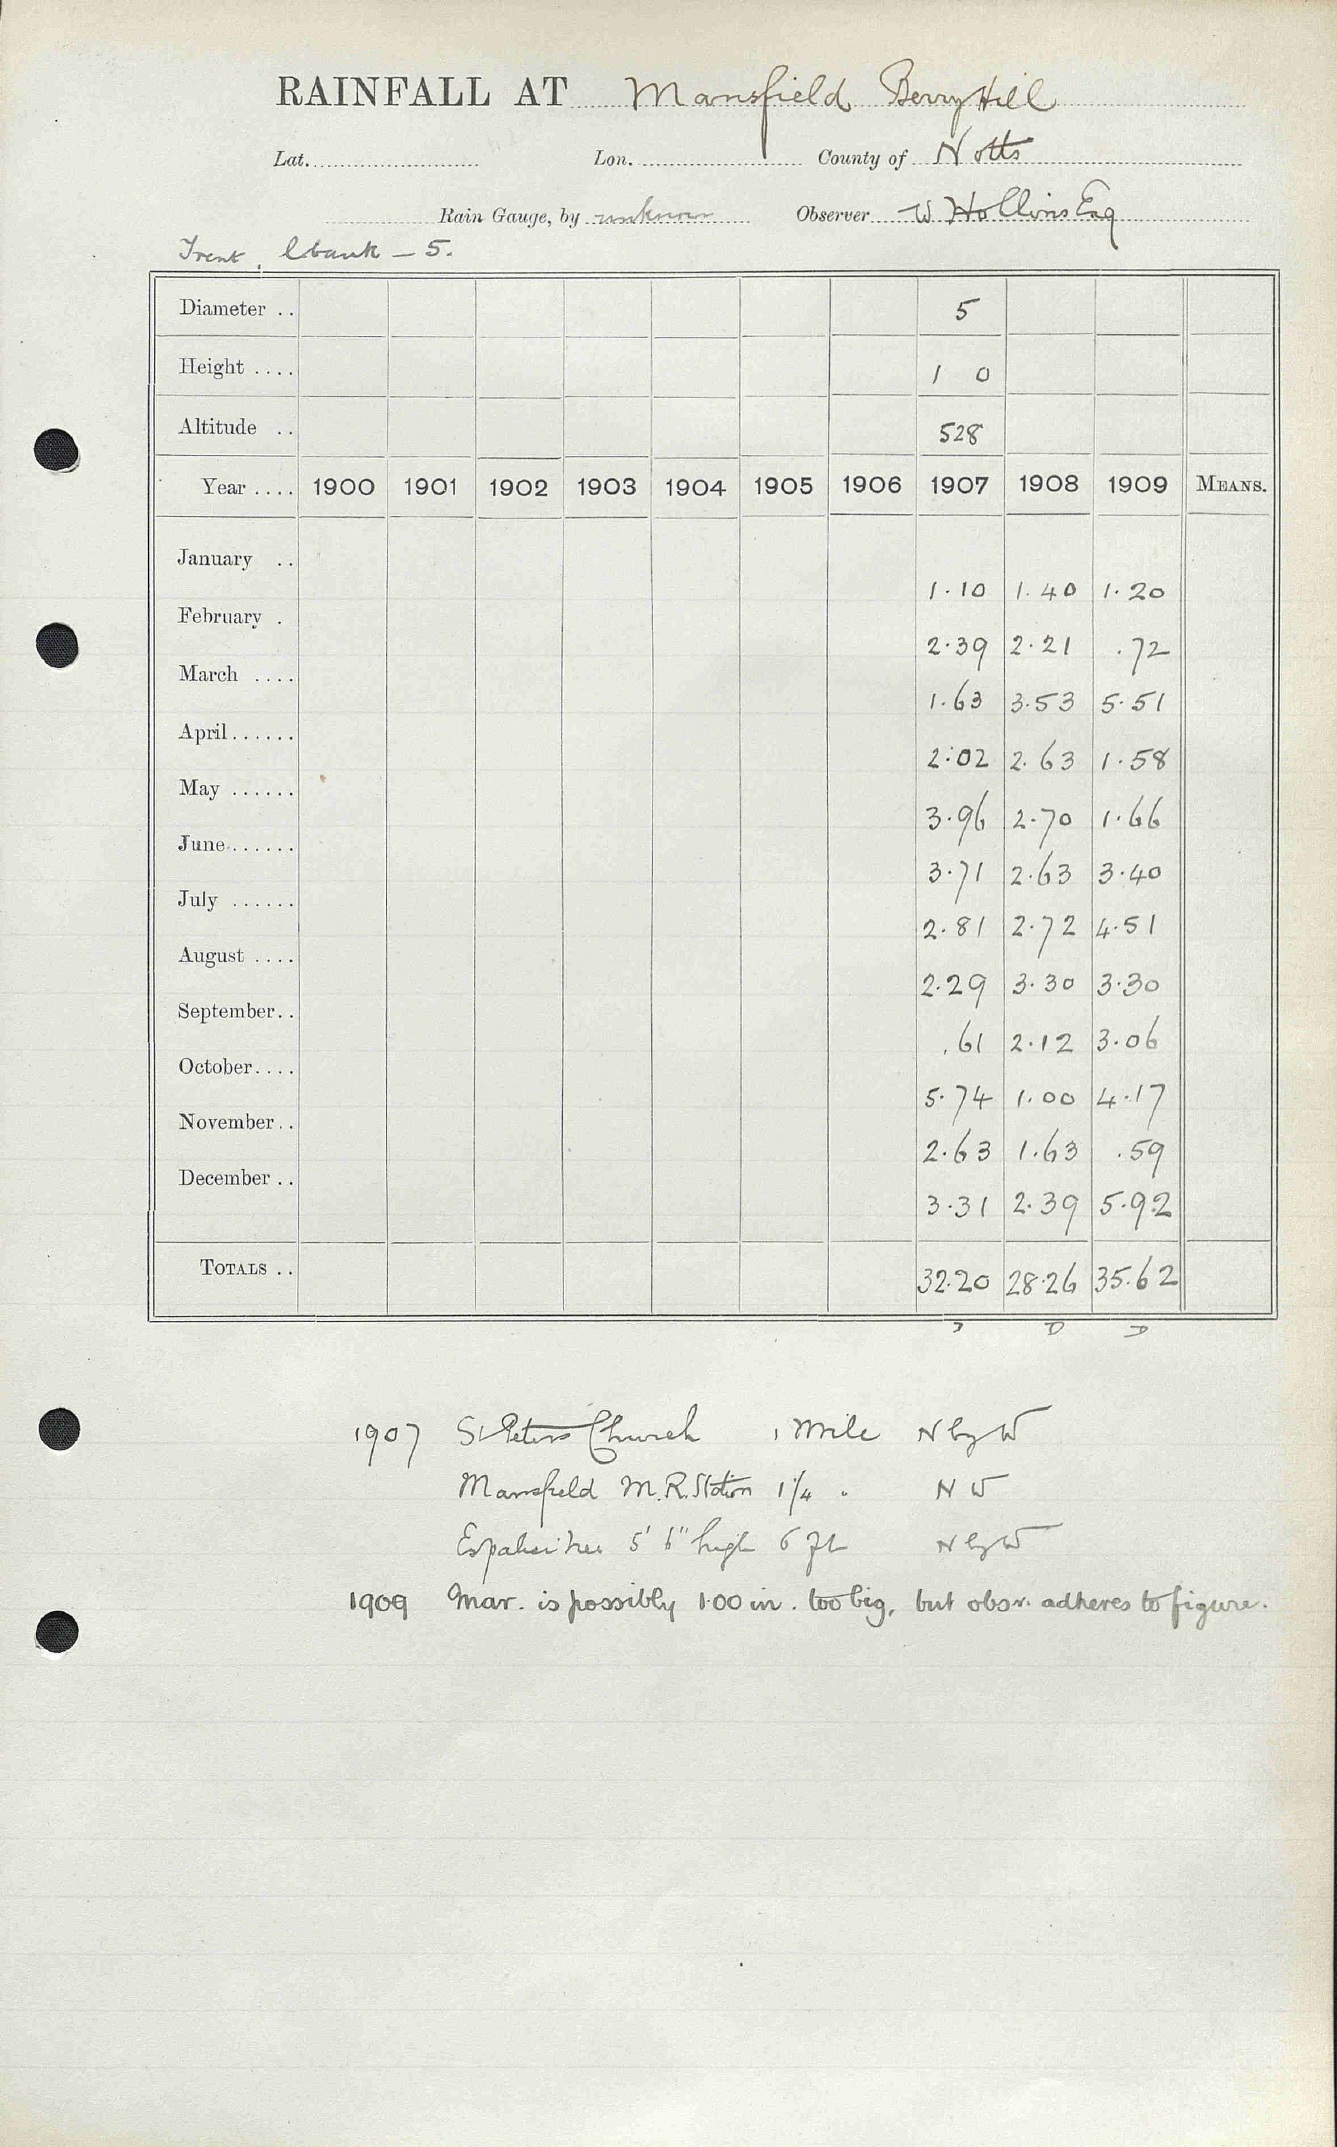 RAINFALL AT Mansfield Berry Hill
Lat. Lon. County of Notts
Rain Gauge, by unknown Observer W Hollins Esq
Trent, l bank – 5.
Diameter .. 5
Height .... 1 0
Altitude .. 528
Year .... 1900 1901 1902 1903 1904 1905 1906 1907 1908 1909 MEANS.
January .. 1.10 1.40 1.20
February . 2.39 2.21 .72
March .... 1.63 3.53 5.51
April...... 2.02 2.63 1.58
May ...... 3.96 2.70 1.66
June....... 3.71 2.63 3.40
July ...... 2.81 2.72 4.51
August .... 2.29 3.30 3.30
September.. .61 2.12 3.06
October.... 5.74 1.00 4.17
November.. 2.63 1.63 .59
December .. 3.31 2.39 5.92
TOTALS .. 32.20 28.26 35.62
D D D
1907 St Peters Church 1 Mile N by W
Mansfield M.R. Station 1 1/4 " N W
Espalier tree 5' 6" high 6 ft N by W
1909 Mar. is possibly 1.00 in. too big, but obsr. adheres to figure.